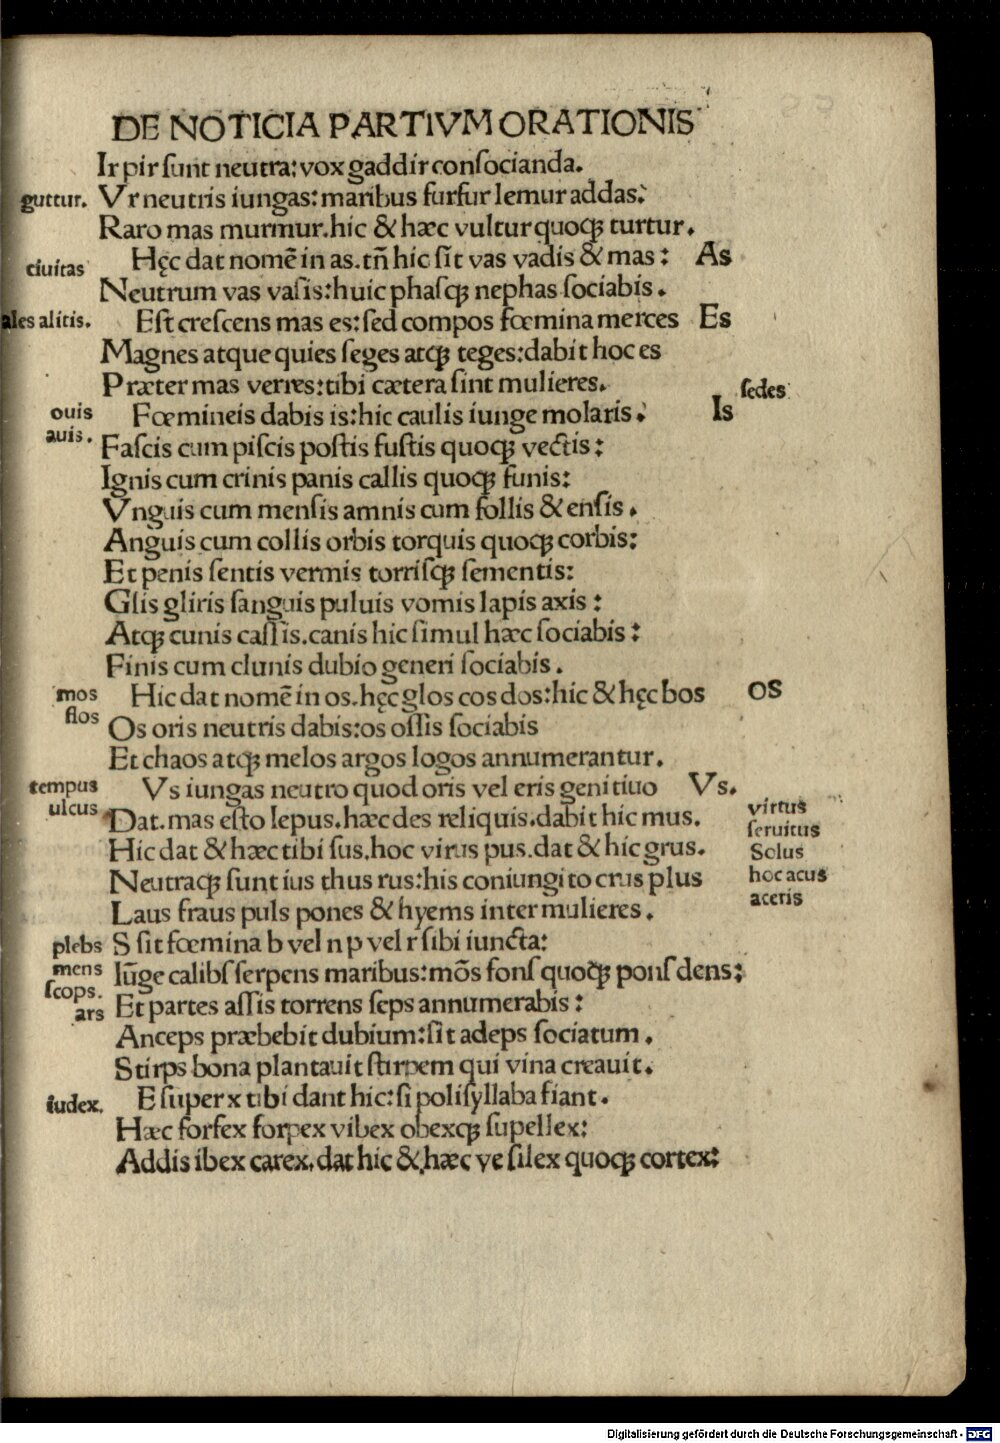 DE NOTICIA PARTIVM ORATIONIS
Ir pir ſunt neutra: vox gaddir conſocianda.
guttur. Vr neutris iungas: maribus furfur lemur addas:
Raro mas murmur. hic & hæc vultur quoqꝫ turtur.
ciuitas Hęc dat nomē in as. tñ hic ſit vas vadis & mas: As
Neutrum vas vaſis: huic phaſqꝫ nephas ſociabis.
ales alitis. Eſt creſcens mas es: ſed compos fœmina merces Es
Magnes atque quies ſeges atqꝫ teges: dabit hoc es
Præter mas verres: tibi cætera ſint mulieres.
ſedes
ouis Fœmineis dabis is: hic caulis iunge molaris: Is
auis. Faſcis cum piſcis poſtis fuſtis quoqꝫ vectis:
Ignis cum crinis panis callis quoqꝫ funis:
Vnguis cum menſis amnis cum follis & enſis.
Anguis cum collis orbis torquis quoqꝫ corbis:
Et penis ſentis vermis torriſqꝫ ſementis:
Glis gliris ſanguis puluis vomis lapis axis:
Atqꝫ cunis caſſis. canis hic ſimul hæc ſociabis:
Finis cum clunis dubio generi ſociabis.
mos Hic dat nomē in os. hęc glos cos dos: hic & hęc bos OS
flos Os oris neutris dabis: os oſſis ſociabis
Et chaos atqꝫ melos argos logos annumerantur.
tempus Vs iungas neutro quod oris vel eris genitiuo Vs.
ulcus Dat. mas eſto lepus. hæc des reliquis. dabit hic mus. virtus
ſeruitus
Hic dat & hæc tibi ſus. hoc virus pus. dat & hic grus. Solus
Neutraqꝫ ſunt ius thus rus: his coniungito crus plus hoc acus
aceris
Laus fraus puls pones & hyems inter mulieres.
plebs S ſit fœmina b vel n p vel r ſibi iuncta:
mens Iūge calibſ ſerpens maribus: mōs fonſ quoqꝫ ponſ dens:
ſcops.
ars Et partes aſſis torrens ſeps annumerabis:
Anceps præbebit dubium: ſit adeps ſociatum.
Stirps bona plantauit ſtirpem qui vina creauit.
iudex. E ſuper x tibi dant hic: ſi poliſyllaba fiant.
Hæc forfex forpex vibex obexqꝫ ſupellex:
Addis ibex carex. dat hic & hæc ve ſilex quoqꝫ cortex:
Digitalisierung gefördert durch die Deutsche Forschungsgemeinschaft - DFG